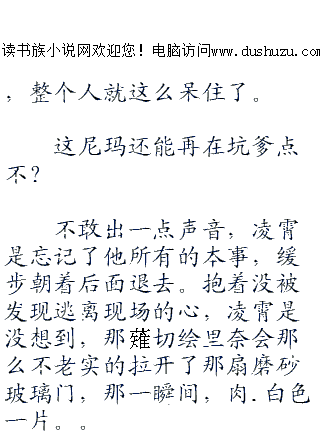 读书族小说网欢迎您！电脑访问www.dushuzu.com
，整个人就这么呆住了。
这尼玛还能再在坑爹点
不？
不敢出一点声音，凌霄
是忘记了他所有的本事，缓
步朝着后面退去。抱着没被
发现逃离现场的心，凌霄是
没想到，那薙切绘里奈会那
么不老实的拉开了那扇磨砂
玻璃门，那一瞬间，肉.白色
一片。。